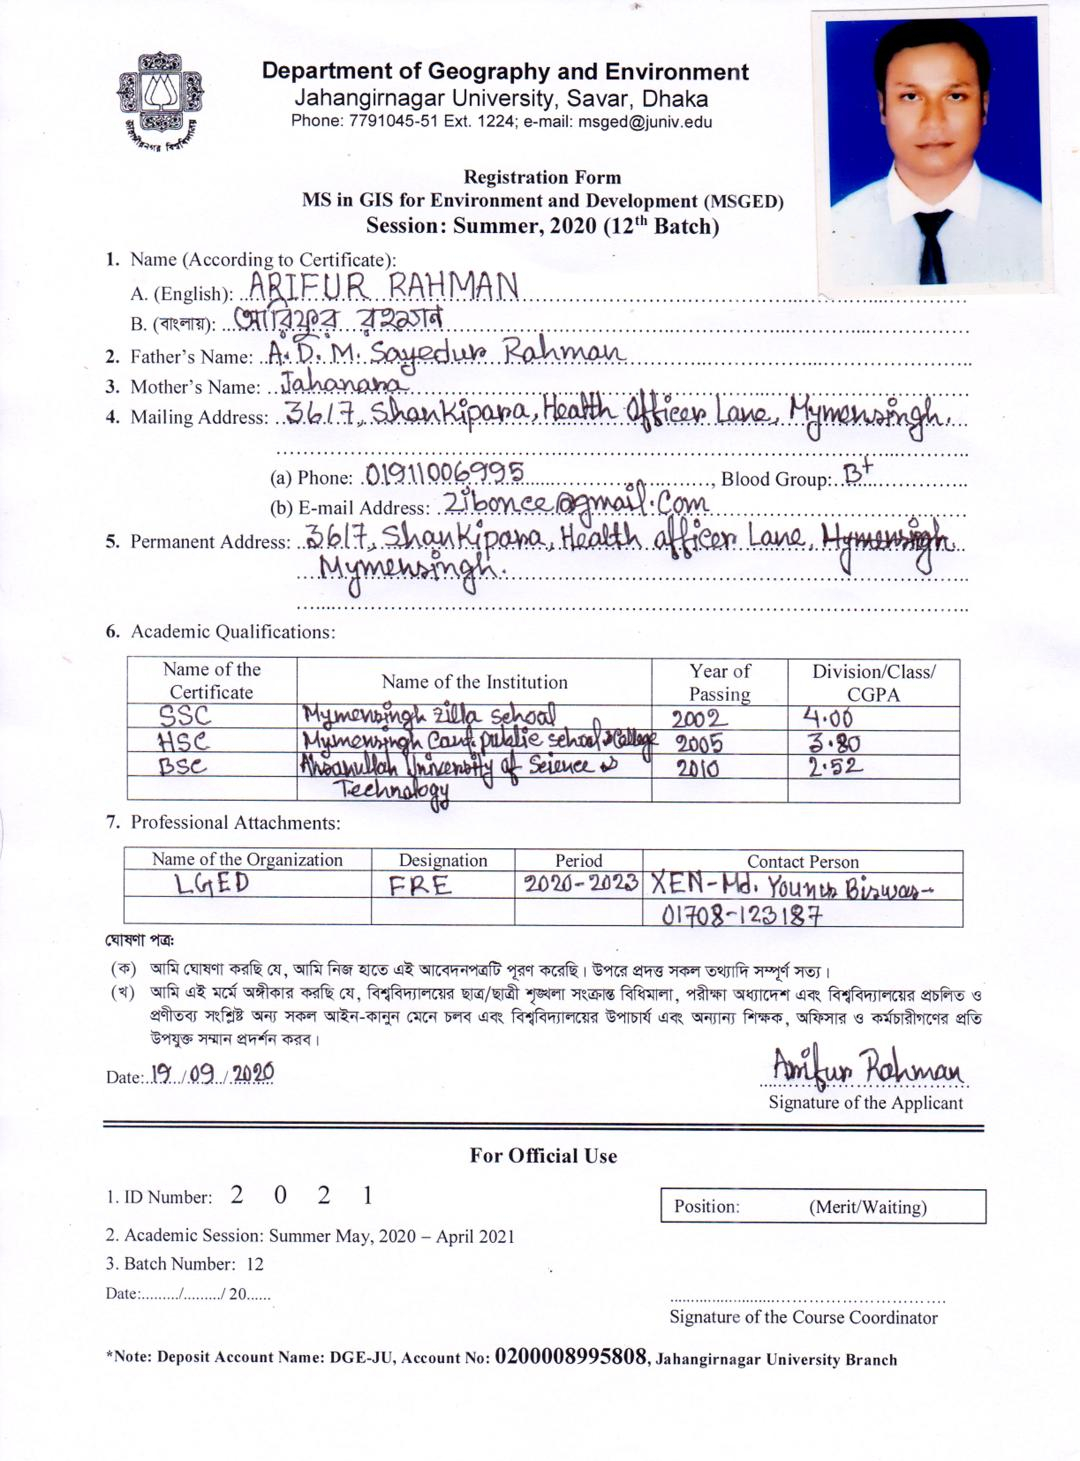 জাহাঙ্গীরনগর বিশ্ববিদ্যালয়
Department of Geography and Environment
Jahangirnagar University, Savar, Dhaka
Phone: 7791045-51 Ext. 1224; e-mail: msged@juniv.edu
Registration Form
MS in GIS for Environment and Development (MSGED)
Session: Summer, 2020 (12th Batch)
1. Name (According to Certificate):
A. (English): ARIFUR RAHMAN
B. (বাংলায়): আরিফুর রহমান
2. Father's Name: A. D. M. Sayedur Rahman
3. Mother's Name: Jahanara
4. Mailing Address: 36/7, Shankipara, Health officer Lane, Mymensingh.
(a) Phone: 01911006995, Blood Group: B+
(b) E-mail Address: zibonce@gmail.com
5. Permanent Address: 36/7, Shankipara, Health officer Lane, Mymensingh
Mymensingh.
6. Academic Qualifications:
Name of the Certificate Name of the Institution Year of Passing Division/Class/ CGPA
SSC Mymensingh zilla school 2002 4.00
HSC Mymensingh Cant. public school & College 2005 3.80
BSc Ahsanullah University of Science & 2010 2.52
Technology
7. Professional Attachments:
Name of the Organization Designation Period Contact Person
LGED FRE 2020-2023 XEN-Md. Younus Biswas-
01708-123187
ঘোষণা পত্র:
(ক) আমি ঘোষণা করছি যে, আমি নিজ হাতে এই আবেদনপত্রটি পূরণ করেছি। উপরে প্রদত্ত সকল তথ্যাদি সম্পূর্ণ সত্য।
(খ) আমি এই মর্মে অঙ্গীকার করছি যে, বিশ্ববিদ্যালয়ের ছাত্র/ছাত্রী শৃঙ্খলা সংক্রান্ত বিধিমালা, পরীক্ষা অধ্যাদেশ এবং বিশ্ববিদ্যালয়ের প্রচলিত ও
প্রণীতব্য সংশ্লিষ্ট অন্য সকল আইন-কানুন মেনে চলব এবং বিশ্ববিদ্যালয়ের উপাচার্য এবং অন্যান্য শিক্ষক, অফিসার ও কর্মচারীগণের প্রতি
উপযুক্ত সম্মান প্রদর্শন করব।
Date: 19/09/2020 Arifur Rahman
Signature of the Applicant
For Official Use
1. ID Number: 2 0 2 1 Position: (Merit/Waiting)
2. Academic Session: Summer May, 2020 – April 2021
3. Batch Number: 12
Date:........./........./ 20......
Signature of the Course Coordinator
*Note: Deposit Account Name: DGE-JU, Account No: 0200008995808, Jahangirnagar University Branch